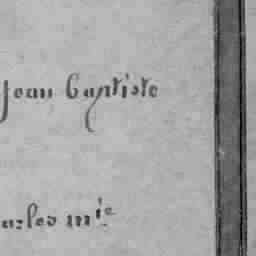 Jean baptiste
arles m^ie